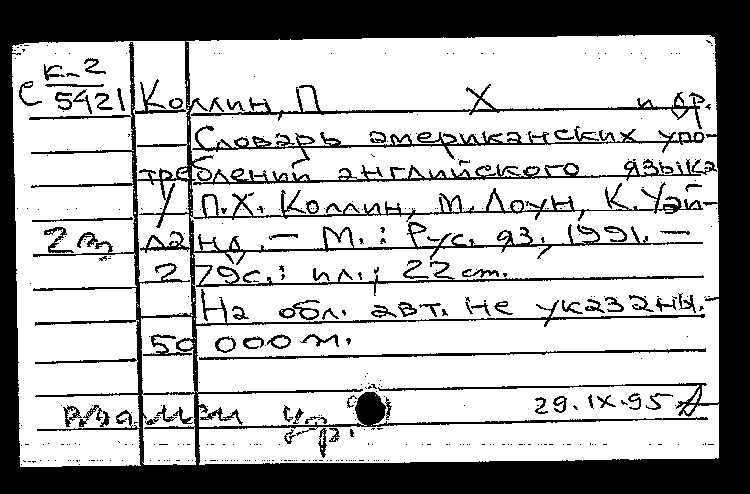 к-2
С 5421 Коллин, П Х и др.
Словарь американских упо-
треблений английского языка
/ П.Х. Коллин, М. Лоун, К. Уэй-
2 э ланд. – М. : Рус. яз., 1991. –
279с. : ил. ; 22 см.
На обл. авт. не указаны. –
50 000 т.
взамен утр.
29.IX.95